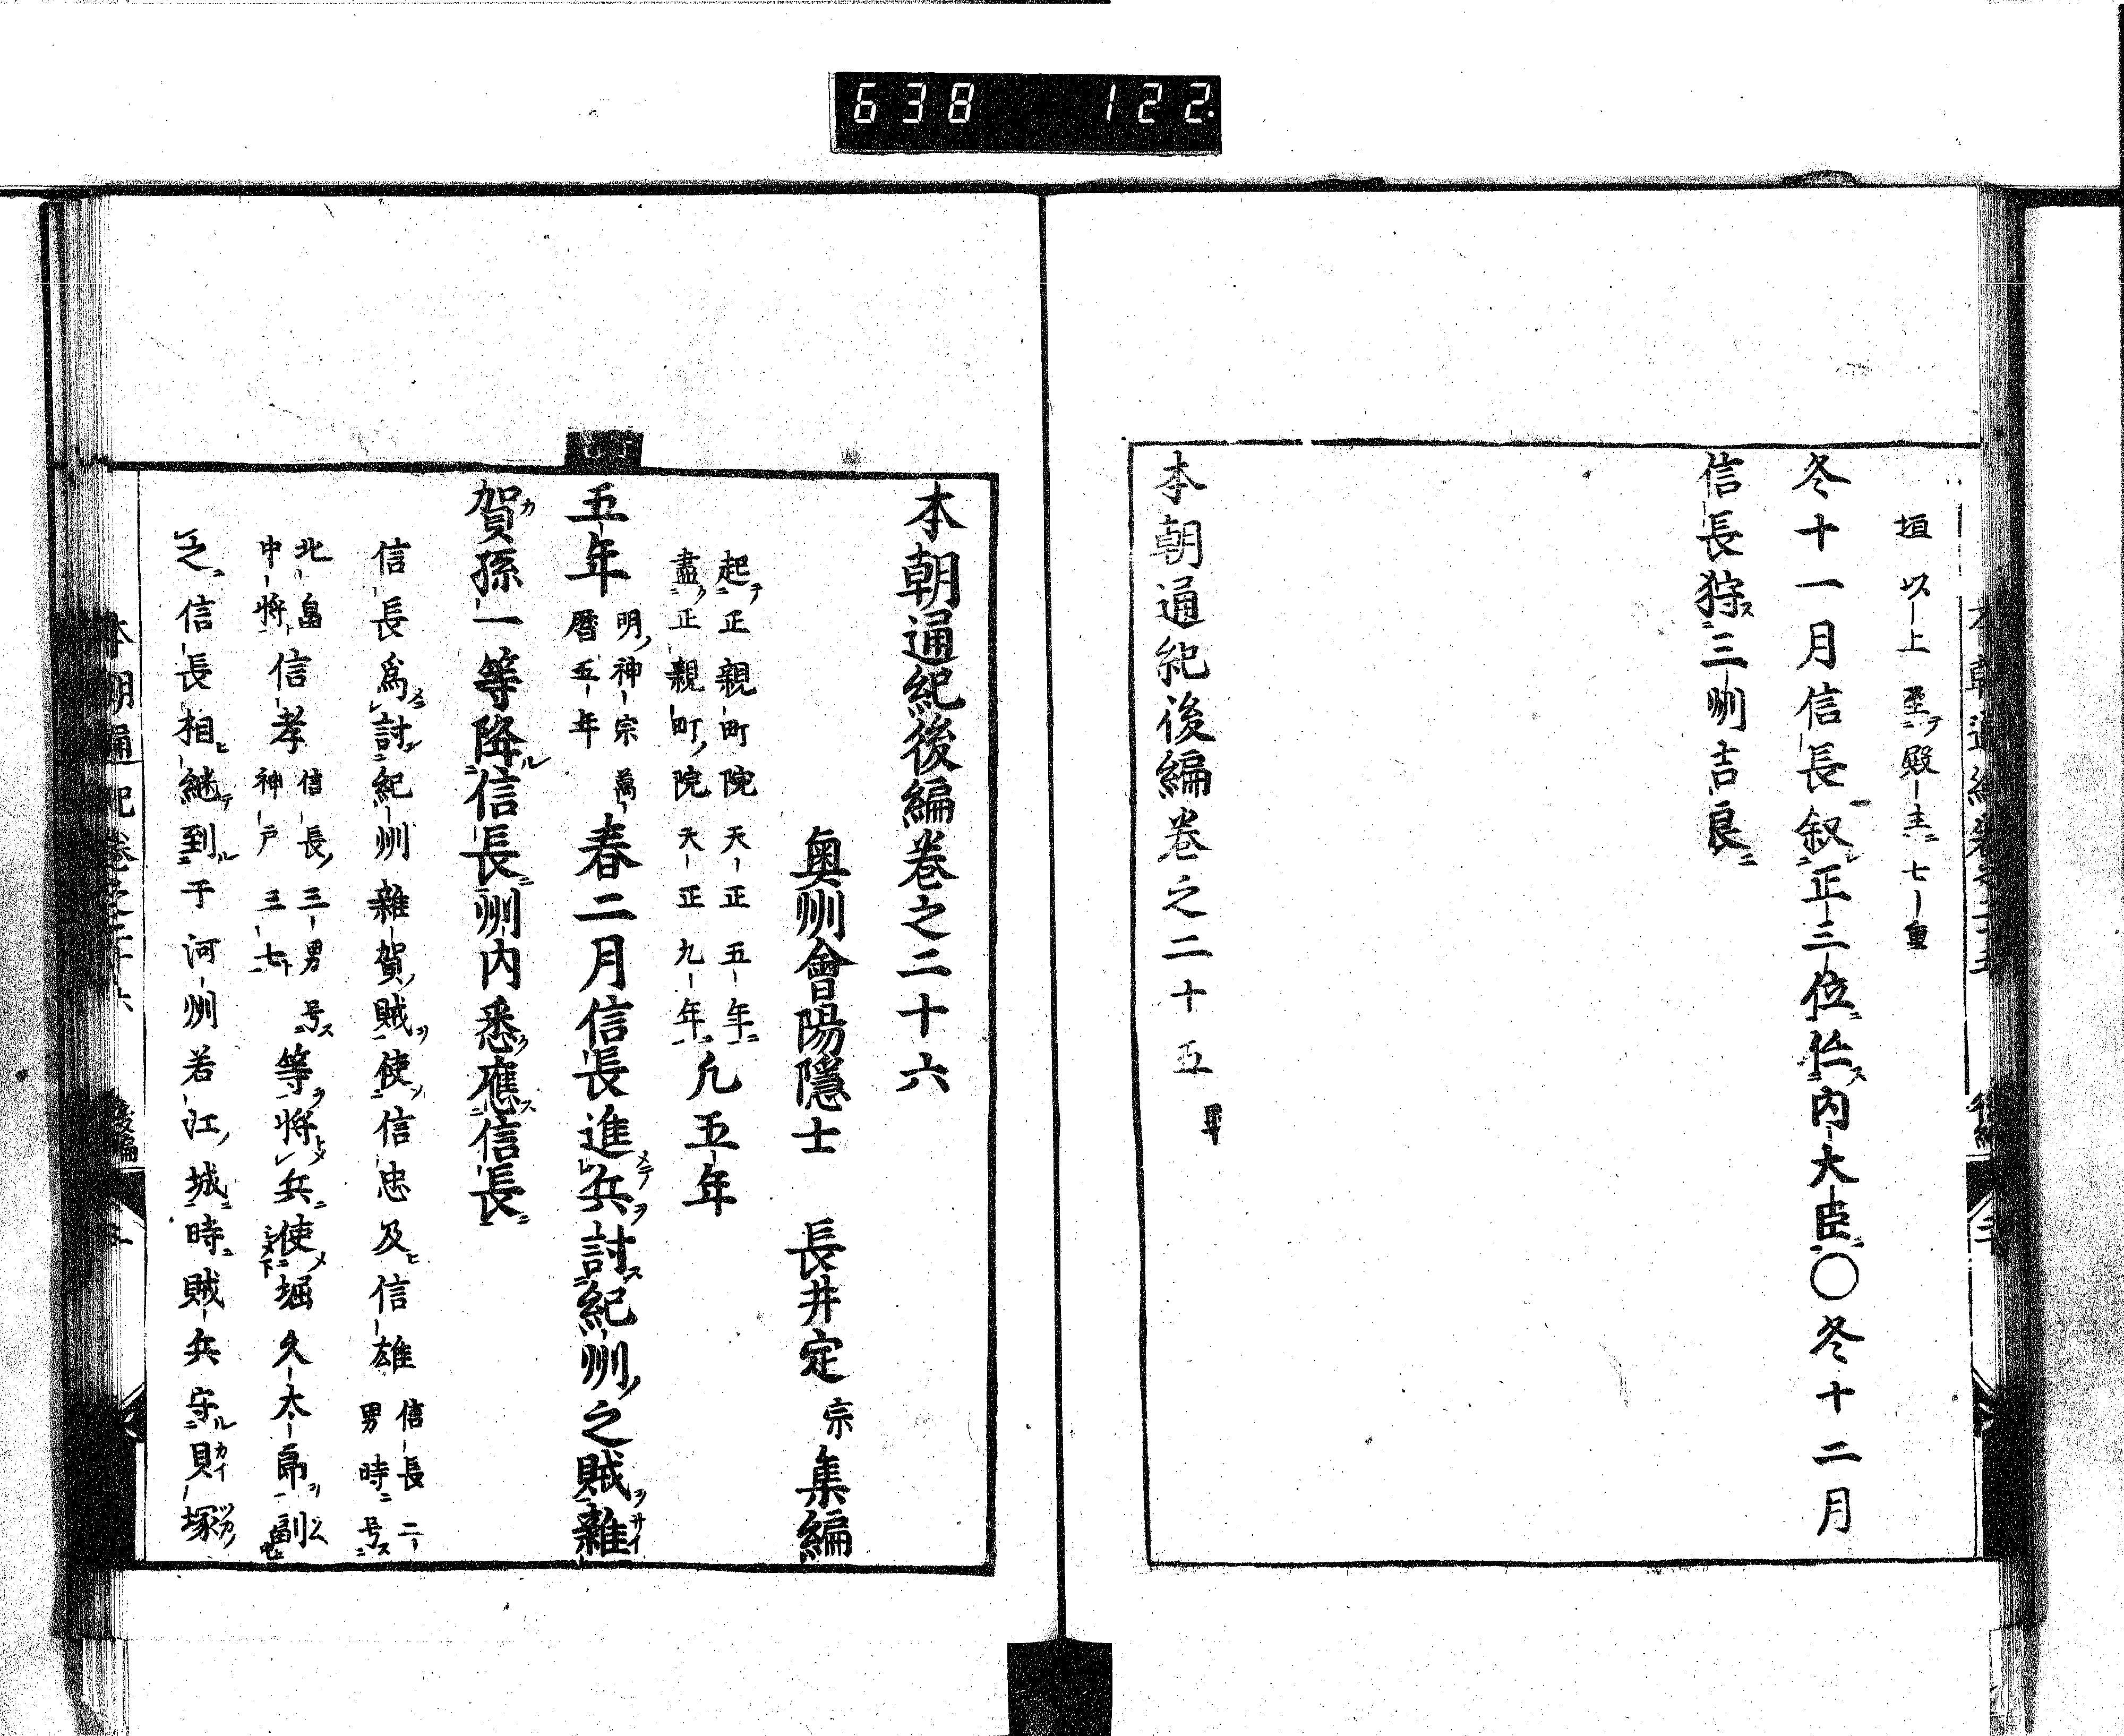 638 122
垣以上至殿主七重
冬十一月信長叙正三位任内大臣〇冬十二月
信長狩三州吉良
本朝通紀後編巻之二十五 畢
本朝通紀後編巻之二十六
奥州會陽隠士 長井定宗集編
起正親町院天正五年
盡正親町院天正九年 凡五年
丁丑
五年 明神宗萬
暦五年 春二月信長進兵討紀州之賊雑
賀孫一等降信長州内悉應信長
信長為討紀州雑賀賊使信忠及信雄 信長二
男時号
北畠
中将 信孝 信長三男号
神戸三七 等将兵使堀久太郎副
之信長相継到于河州若江城時賊兵守貝塚
本朝通紀巻之二十六 後編